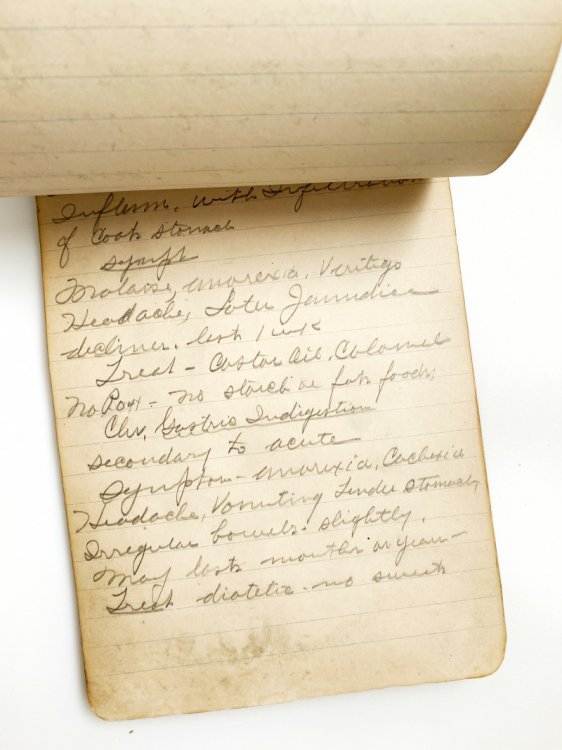 Inflam. with Infiltration
of Coats stomach
Sympt
Malaise, anorexia, Veritigo
Headache, Later Jaundice
declines. last 1 wk
Treat - Castor Oil, Calomel
no starch or fat foods;
Chr. Gastric Indigestion
secondary to acute
Symptom - anorexia, Cachexia
Headache, Vomiting Tender stomach,
Irregular bowels - slightly.
May last months or years -
Treat diatetic - no sweets